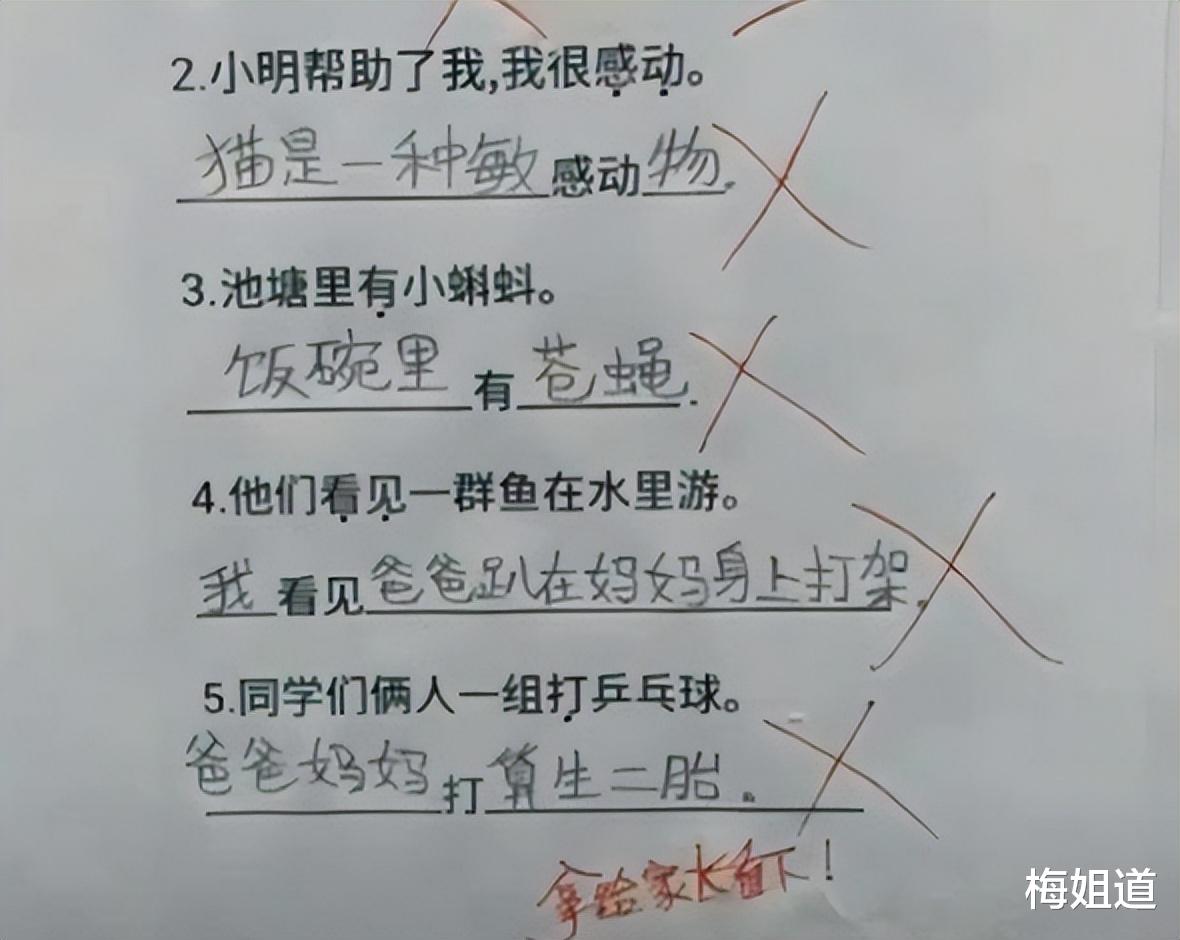 2.小明帮助了我,我很感动。
猫是一种敏感动物.
3.池塘里有小蝌蚪。
饭碗里有苍蝇.
4.他们看见一群鱼在水里游。
我看见爸爸趴在妈妈身上打架.
5.同学们俩人一组打乒乓球。
爸爸妈妈打算生二胎.
拿给家长看下!
梅姐道